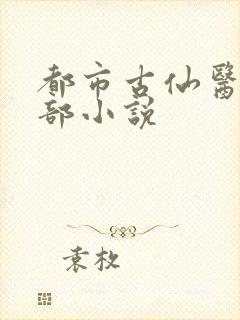 都市古仙醫
部小説
袁枚